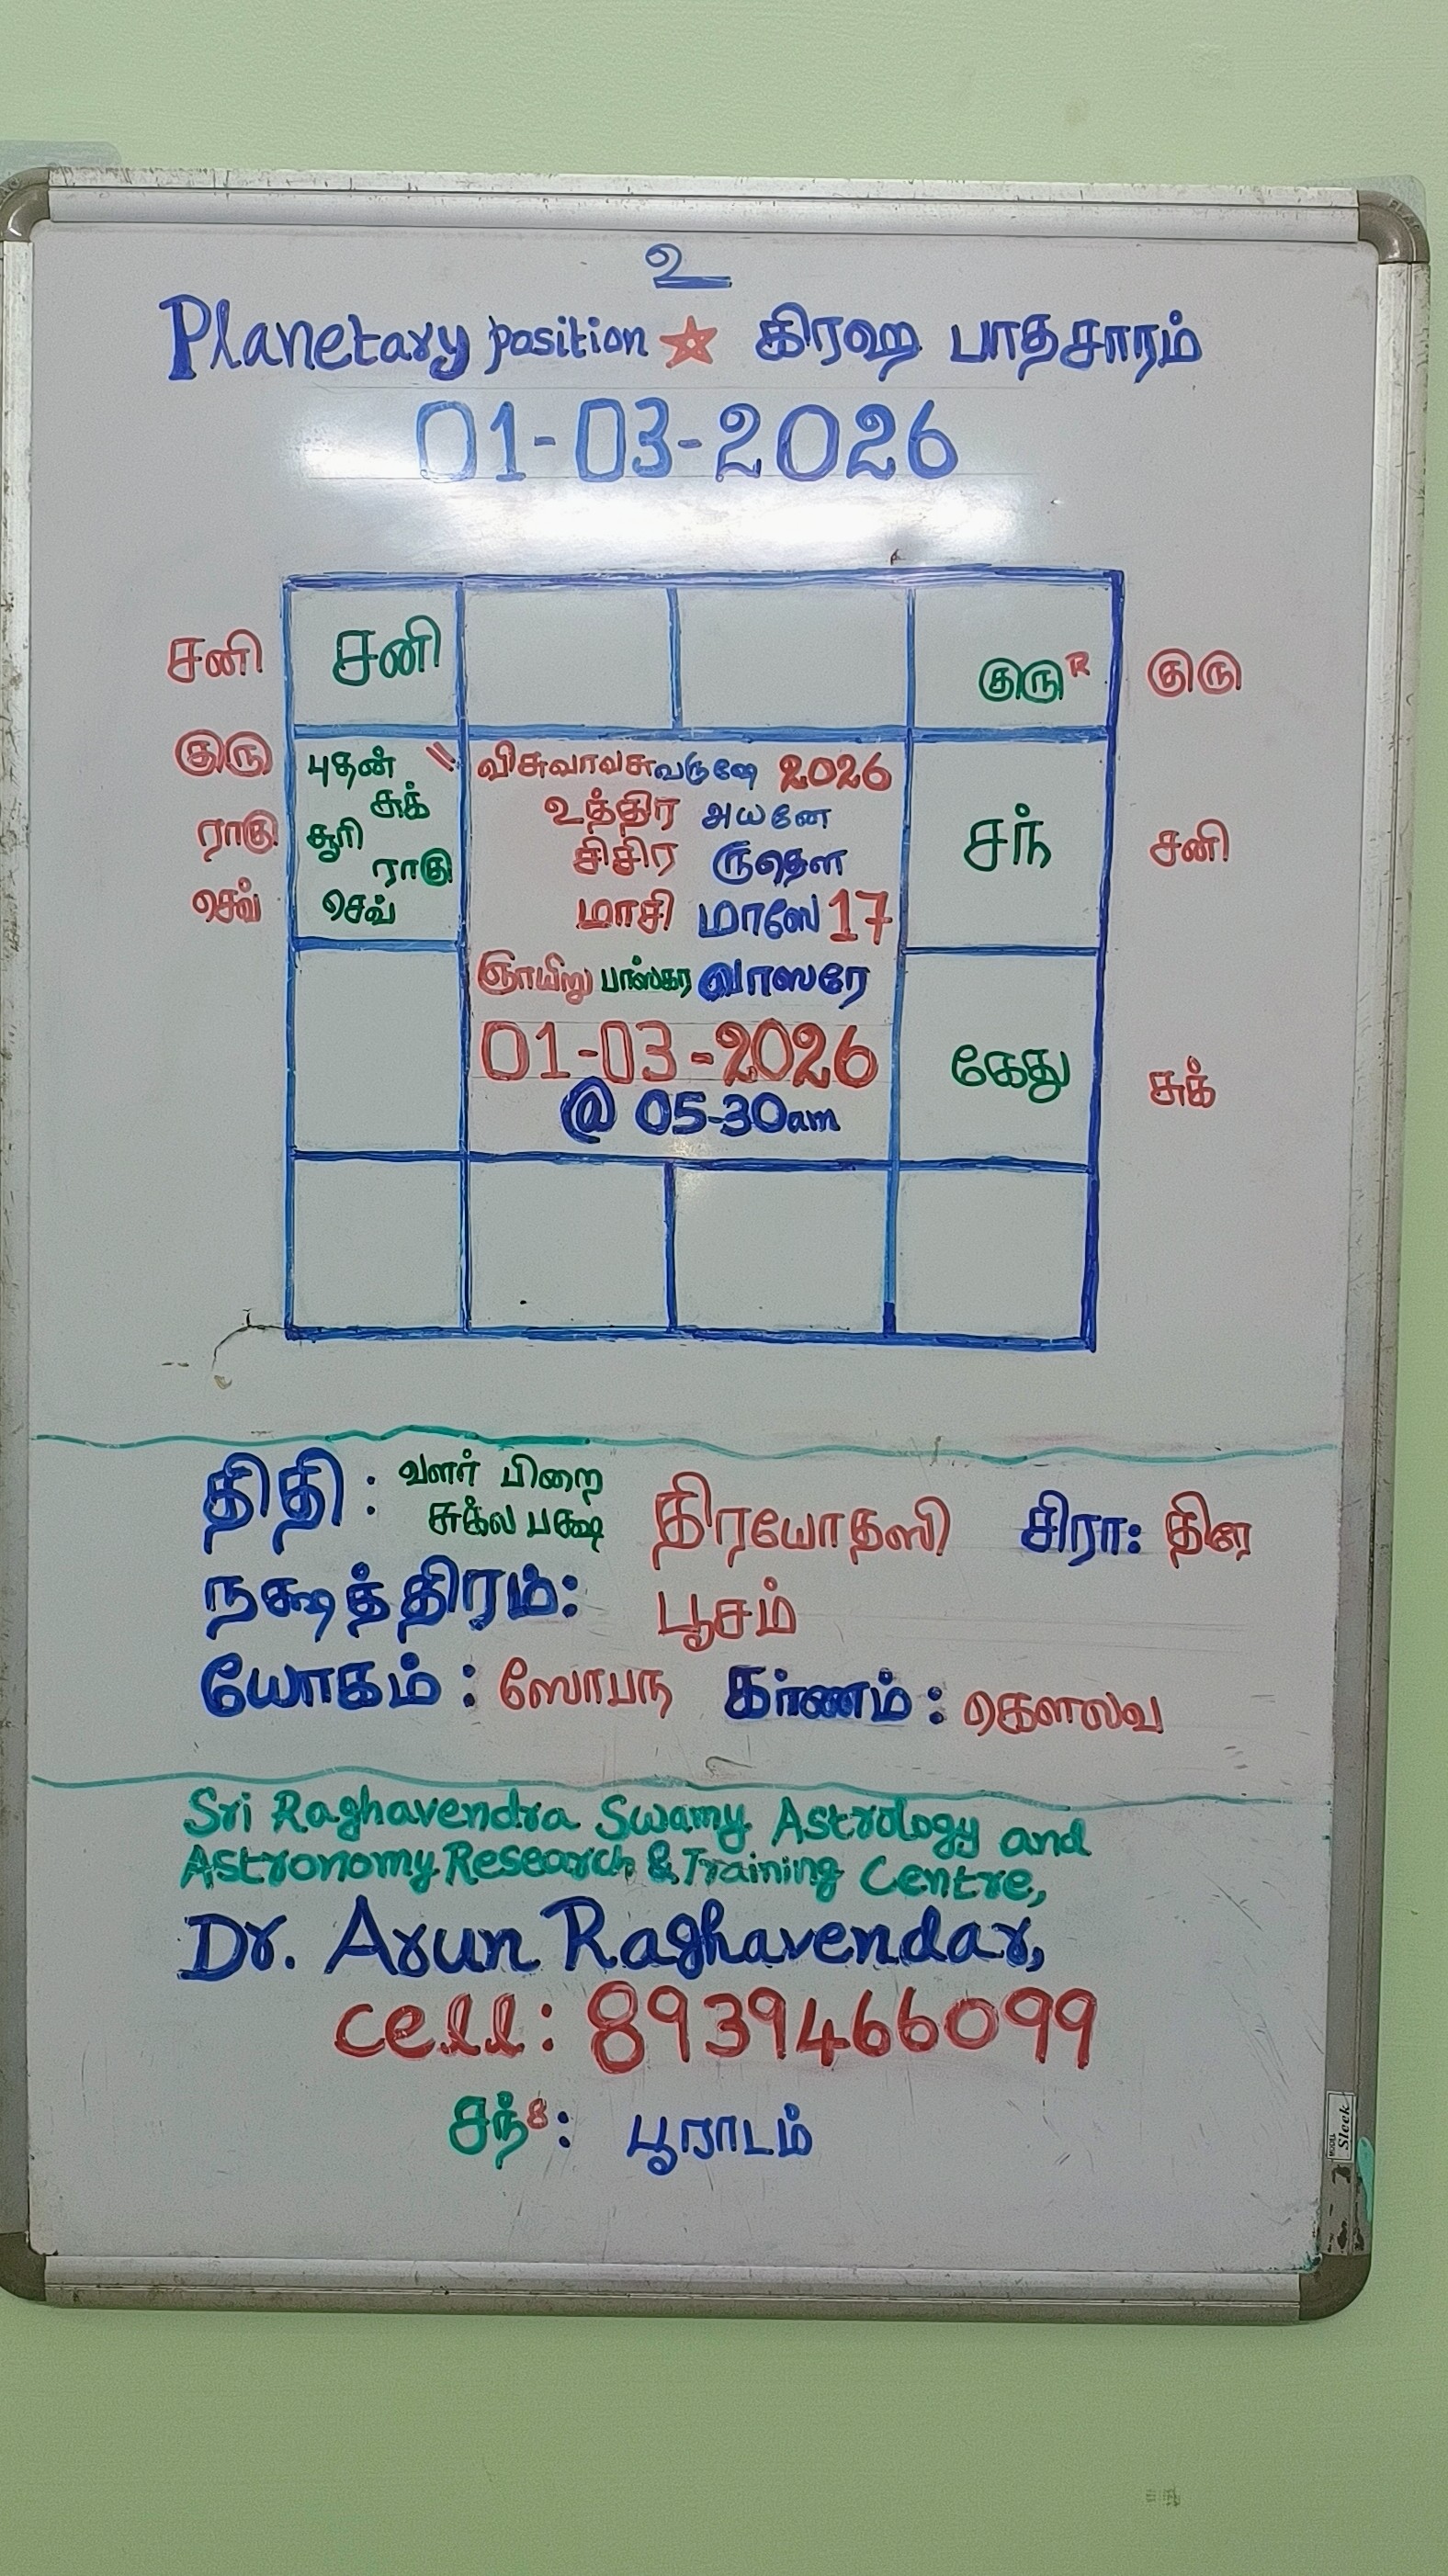 உ
Planetary position ☆ கிரஹ பாதசாரம்
01-03-2026
சனி சனி குரு R குரு
குரு புதன் " விசுவாவசுவருஷே 2026
சுக் உத்திர அயனே
ராகு சூரி சிசிர ருதௌ சந் சனி
ராகு
செவ் செவ் மாசி மாஸே 17
ஞாயிறு பாஸ்கர வாஸரே
01-03-2026 கேது சுக்
@ 05-30am
திதி : வளர் பிறை
சுக்ல பக்ஷ திரயோதஸி சிரா: தின
நக்ஷத்திரம்: பூசம்
யோகம் : ஸோபந கர்ணம் : கௌலவ
Sri Raghavendra Swamy Astrology and
Astronomy Research & Training Centre,
Dr. Arun Raghavendar,
cell: 8939466099
சந் 8 : பூராடம்
Sleek